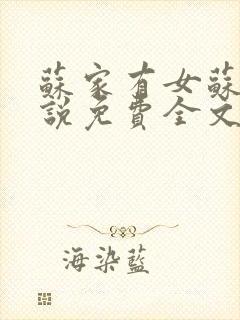 蘇家有女蘇
說免費全文
海染藍